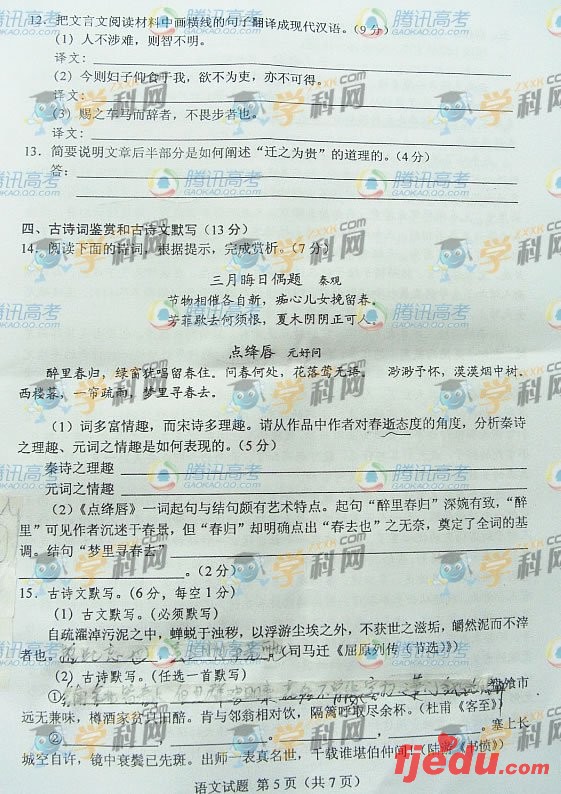 12. 把文言文阅读材料中画横线的句子翻译成现代汉语。(9分)
(1) 人不涉难，则智不明。
译文：
(2) 今则妇子仰食于我，欲不为吏，亦不可得。
译文：
(3) 赐之车马而辞者，不畏步者也。
译文：
13. 简要说明文章后半部分是如何阐述“迁之为贵”的道理的。(4分)
答：
四、古诗词鉴赏和古诗文默写(13分)
14. 阅读下面的诗词，根据提示，完成赏析。(7分)
三月晦日偶题 秦观
节物相催各自新，痴心儿女挽留春。
芳菲歇去何须恨，夏木阴阴正可人。
点绛唇 元好问
醉里春归，绿窗犹唱留春住。问春何处，花落莺无语。 渺渺予怀，漠漠烟中树。
西楼暮，一帘疏雨，梦里寻春去。
(1) 词多富情趣，而宋诗多理趣。请从作品中作者对春逝态度的角度，分析秦诗
之理趣、元词之情趣是如何表现的。(5分)
秦诗之理趣
元词之情趣
(2)《点绛唇》一词起句与结句颇有艺术特点。起句“醉里春归”深婉有致，“醉
里”可见作者沉迷于春景，但“春归”却明确点出“春去也”之无奈，奠定了全词的基
调。结句“梦里寻春去”
。(2分)
15. 古诗文默写。(6分，每空1分)
(1) 古文默写。(必须默写)
自疏濯淖污泥之中，蝉蜕于浊秽，以浮游尘埃之外，不获世之滋垢，皭然泥而不滓
者也。 (司马迁《屈原列传(节选)》)
(2) 古诗默写。(任选一首默写)
① 飧市
远无兼味，樽酒家贫只旧醅。肯与邻翁相对饮，隔篱呼取尽余杯。(杜甫《客至》)
② ， 。塞上长
城空自许，镜中衰鬓已先斑。出师一表真名世，千载谁堪伯仲间！(陆游《书愤》)
语文试题 第5页（共7页）
腾讯高考
GAOKAO.QQ.COM
学科网
ZXXK.com
fjedu.com